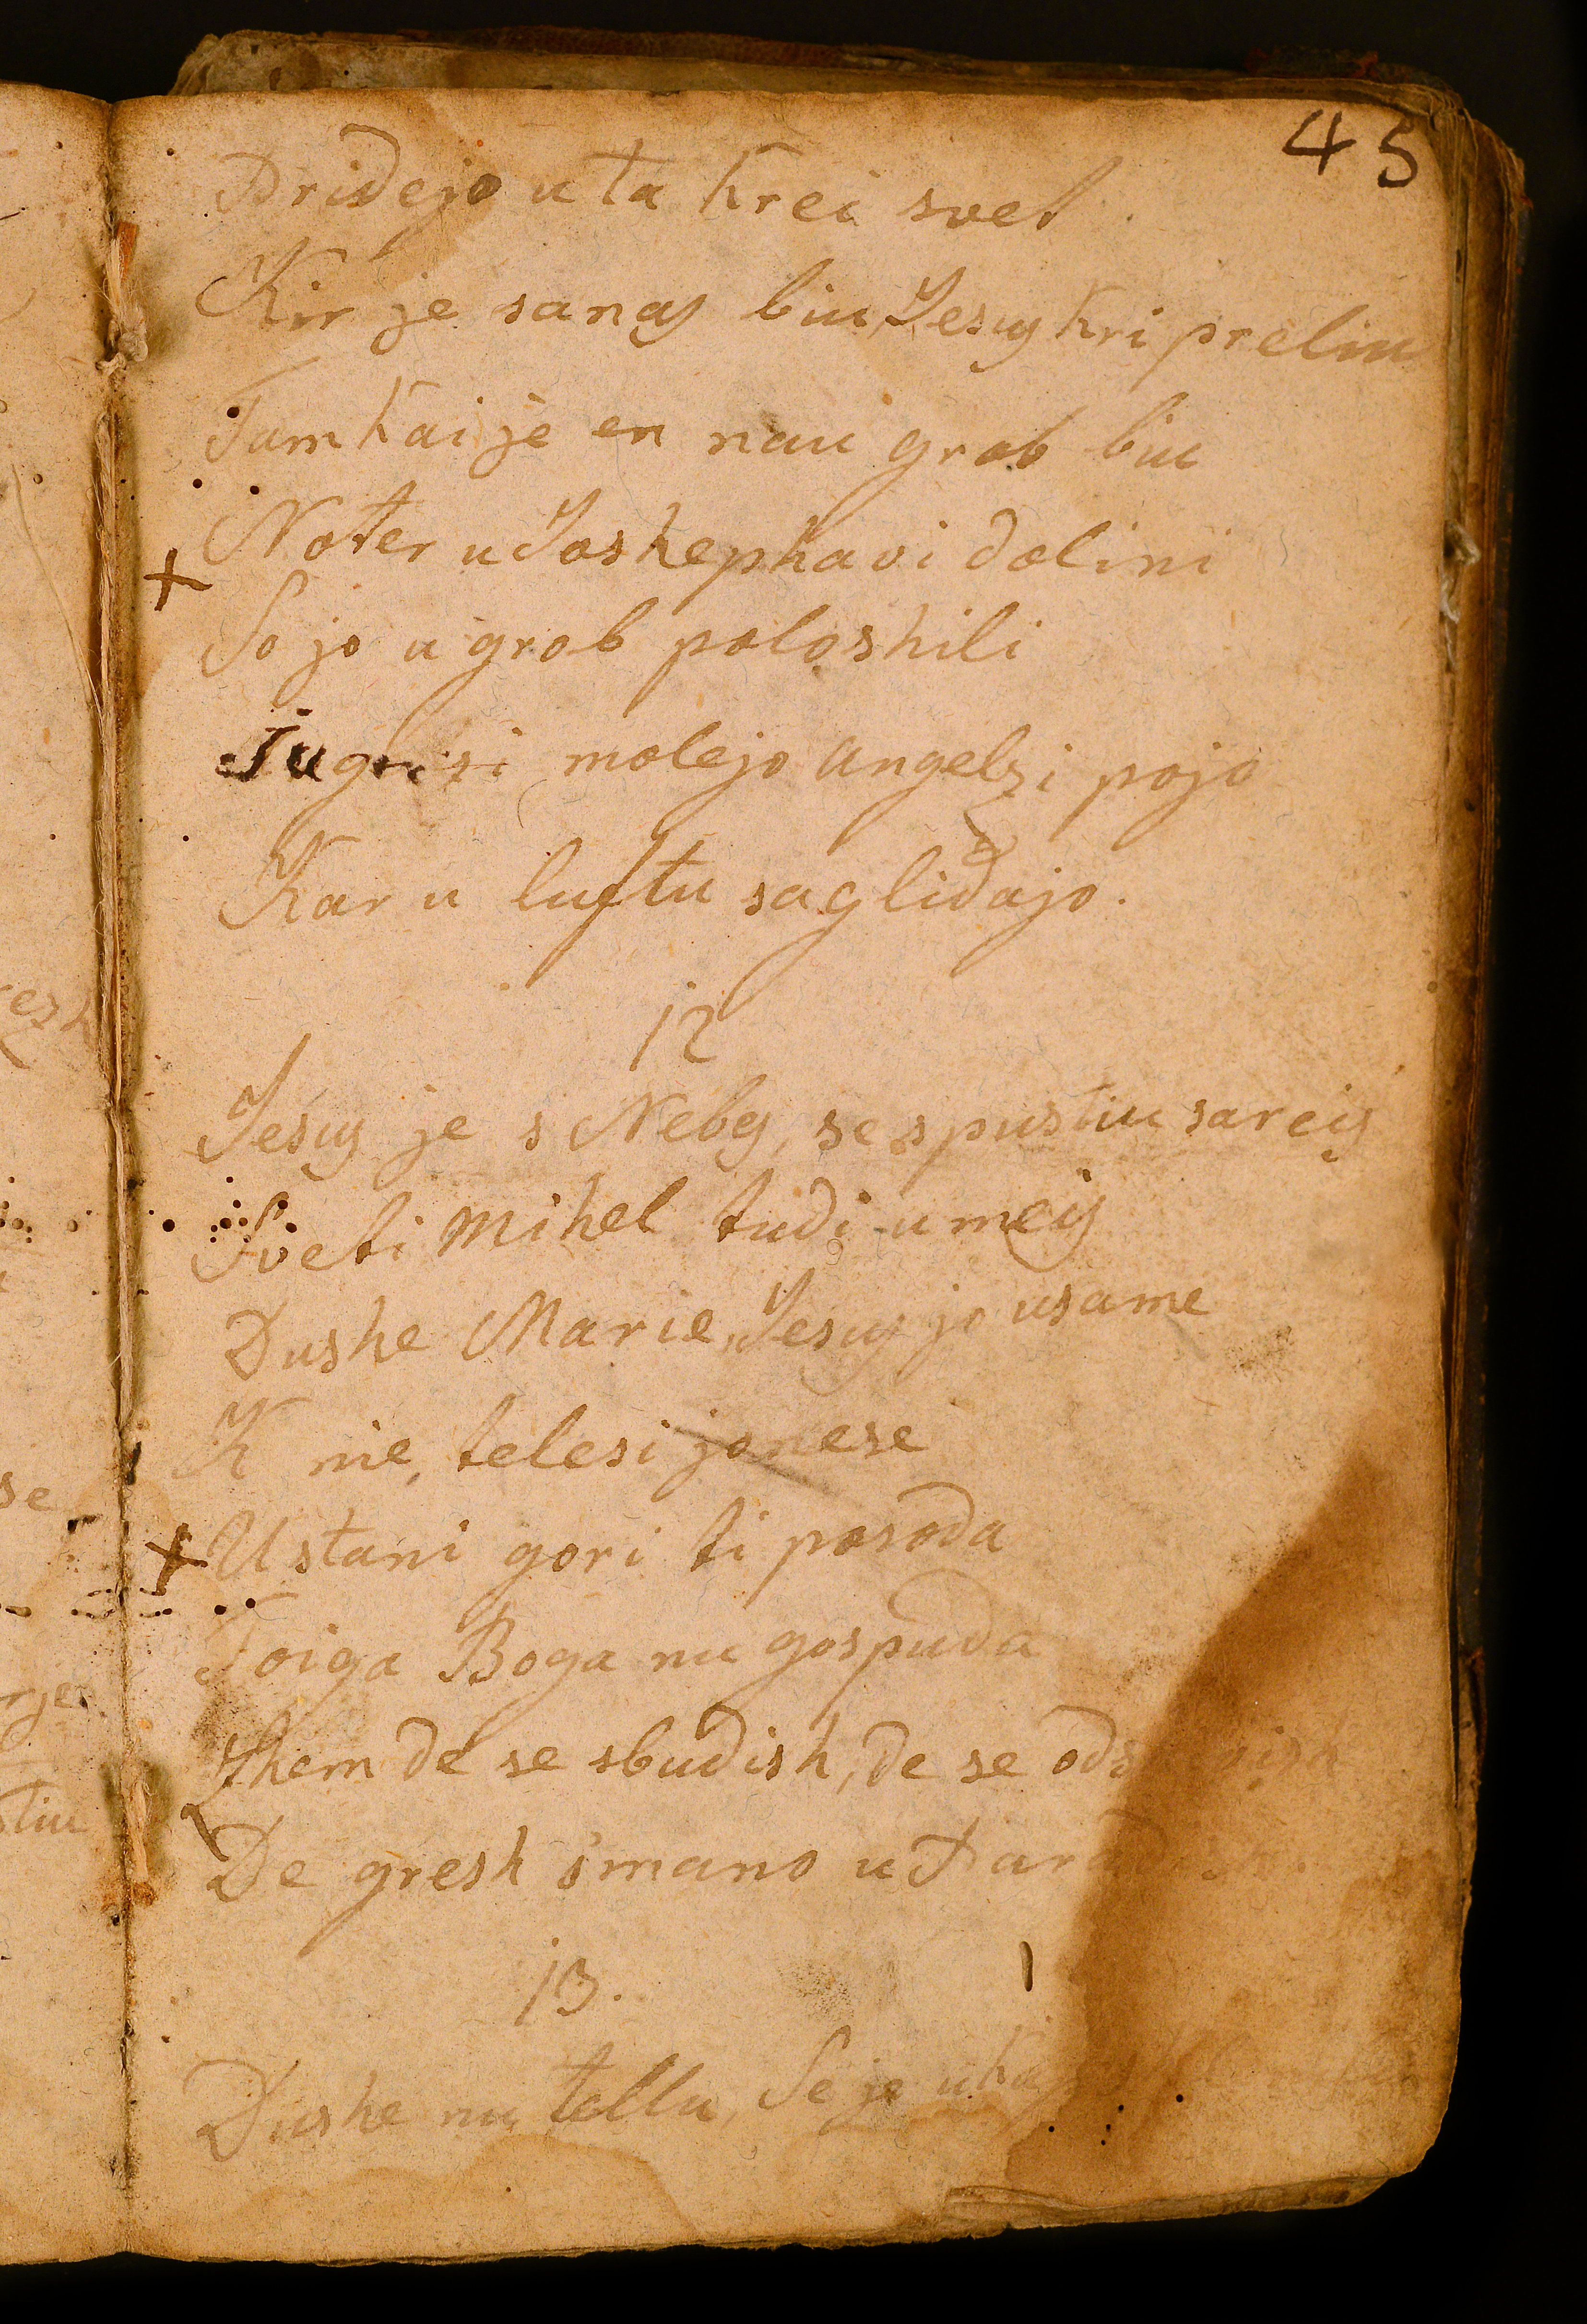 45
Pridejo u ta krei svet
Kir je sanas biu, Jesus kri preliu
Tam kai je en nau grob biu
Noter u Joshephavi dolini
So jo u grob poloshili
Jugri si molejo angelzi pojo
Kar u luftu sagliдајo.
12
Jesus je s Nebes, se spustiu sareis
Sveti Mihel tudi u meis
Dushe Marie, Jesus jo usame
K nie, telesi jo nese
Ustani gori ti posoda
Toiga Boga nu gospuda
Zhem de se sbudish, de se
De gresh s'mano u
13.
Dushe nu tellu, Se je